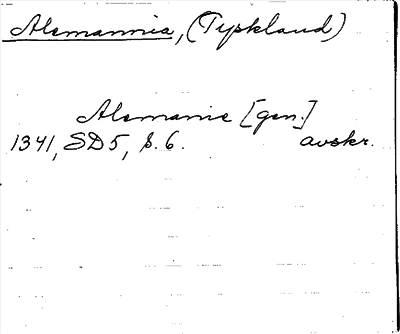 Alemannia, (Tyskland)
Alemanie [gen.]
1341, SD5, s. 6. avskr.